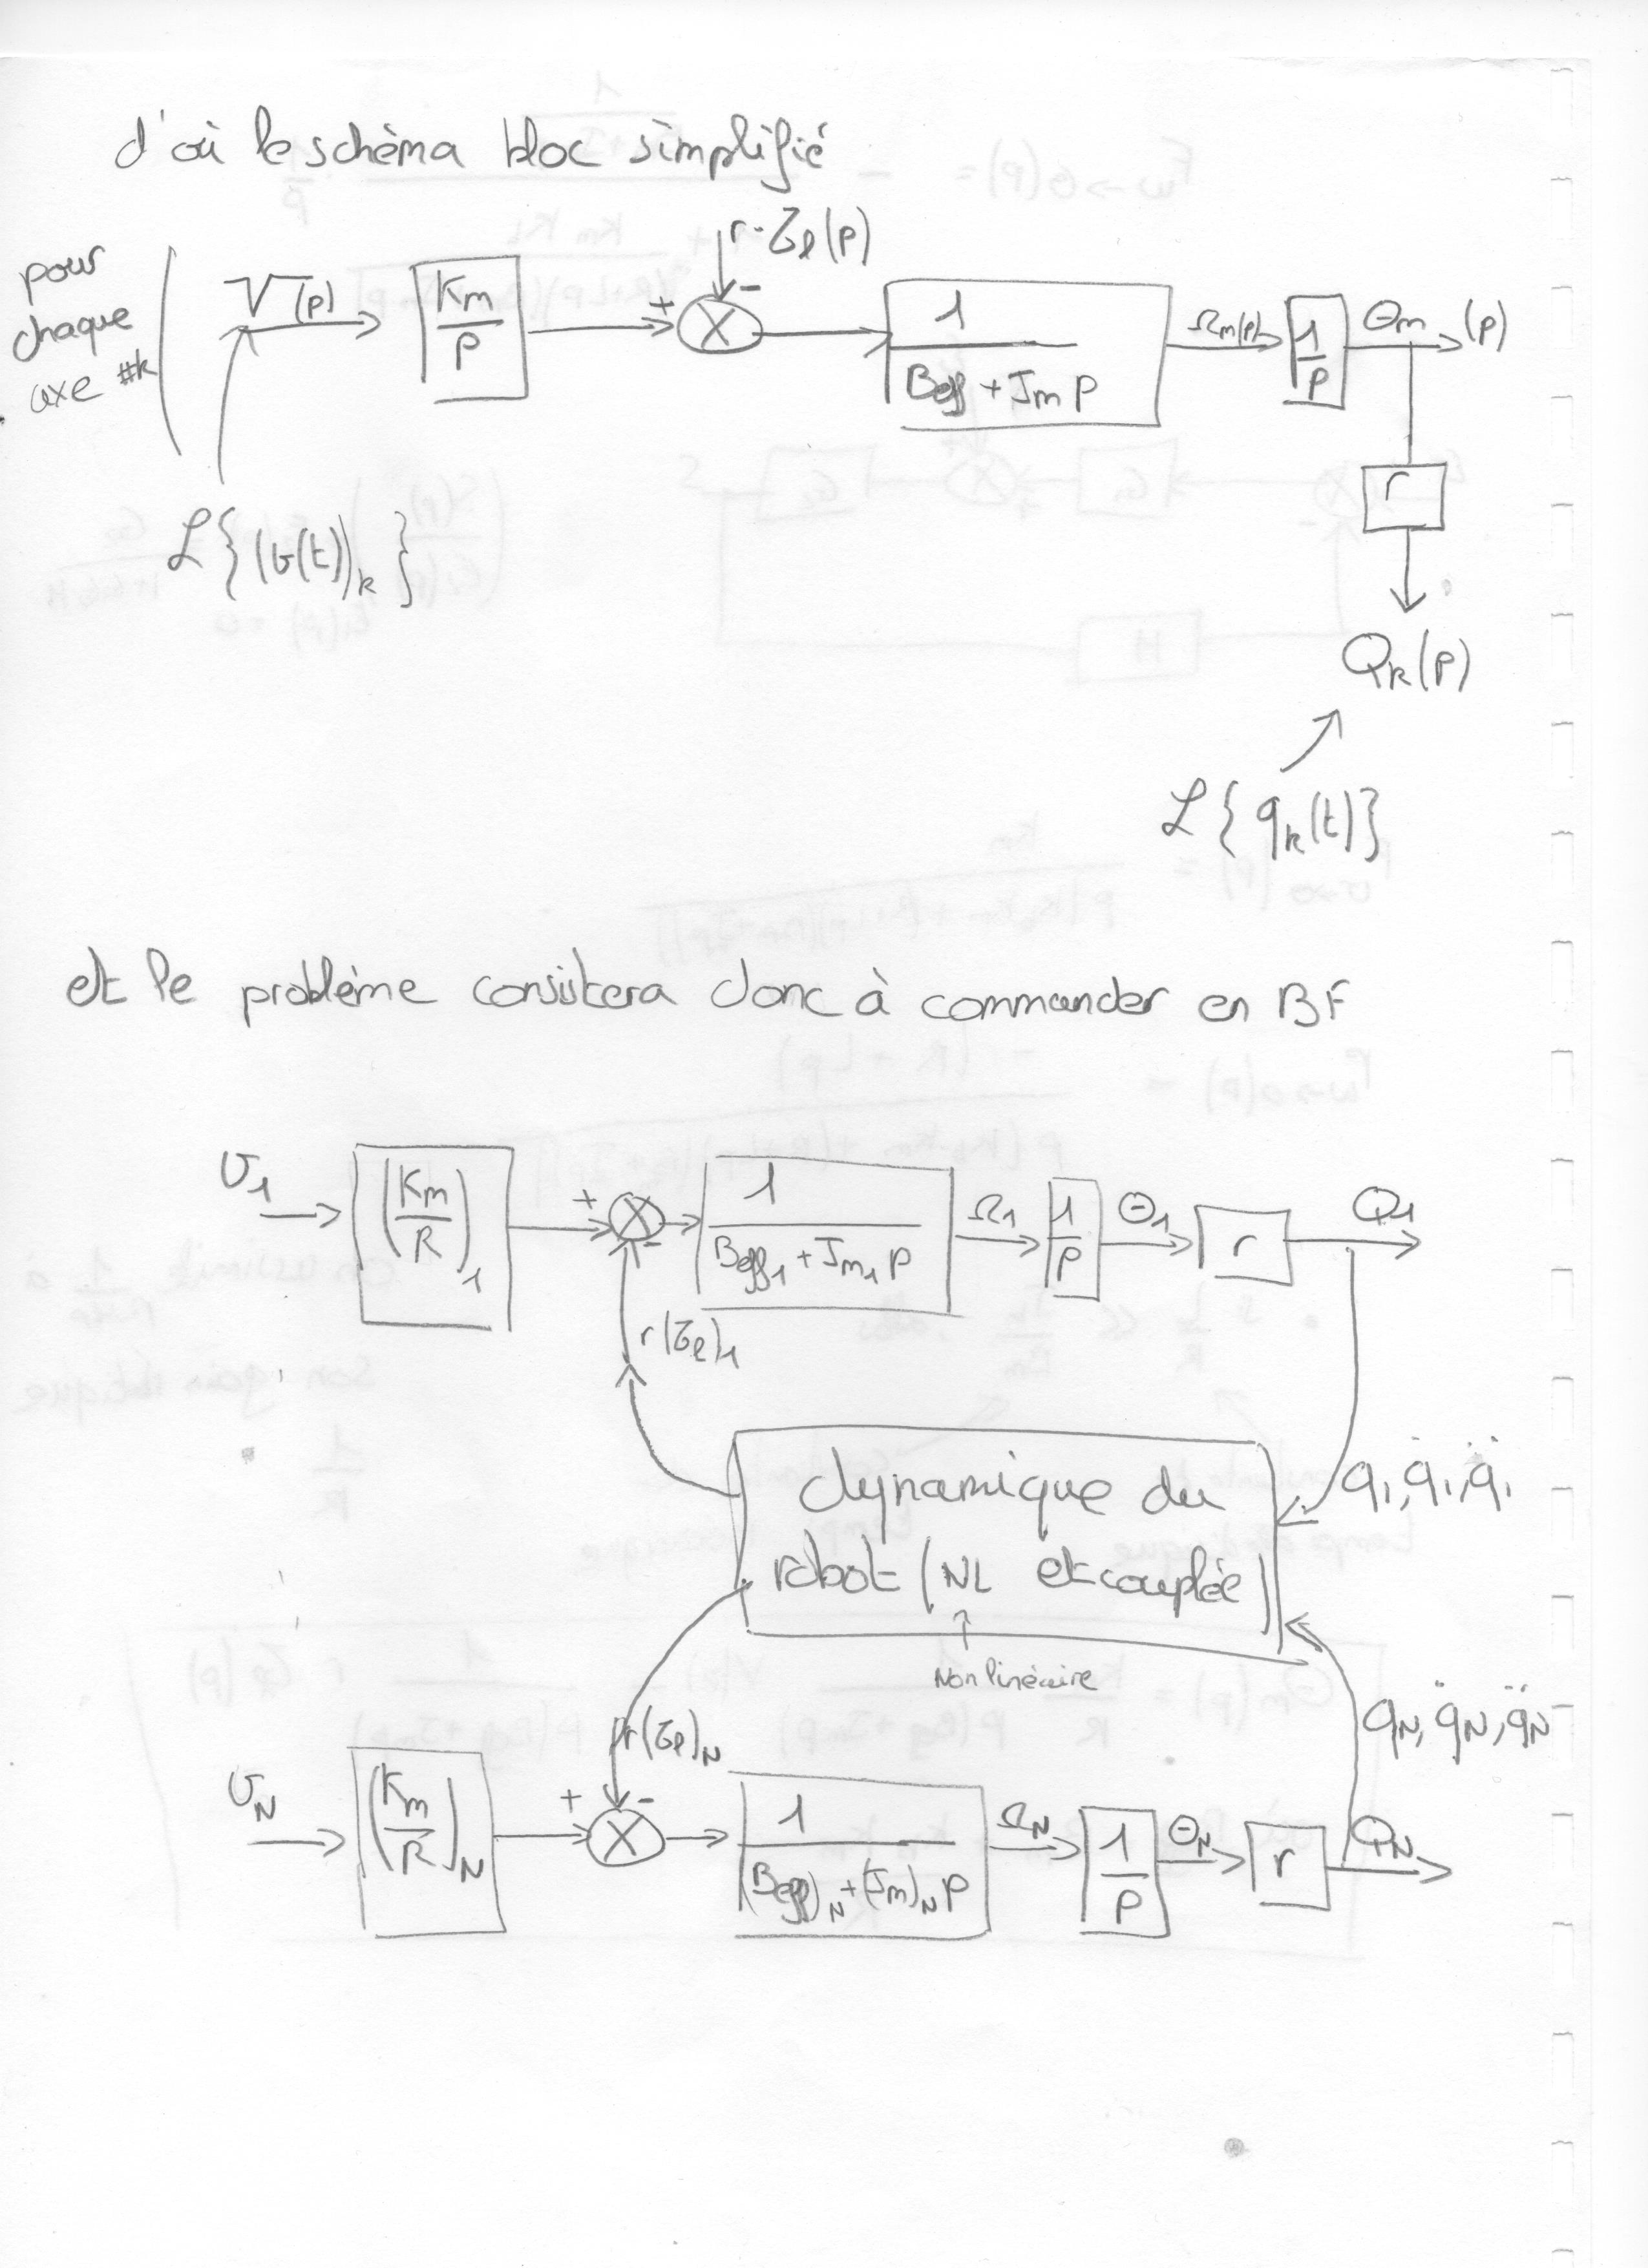 d'où le schèma bloc simplifié
pour
chaque
axe #k
V(p)
Km
P
+
-
r·τl(p)
1
Beff + Jm P
Ωm(p)
1
P
Θm (p)
r
Qk(p)
L{(v(t))k}
L{qk(t)}
et le problème consistera donc à commander en BF
U1
(Km/R)1
+
-
r(τl)1
1
Beff1 + Jm1 P
Ω1
1
P
Θ1
r
Q1
dynamique du
robot (NL et couplée)
Non linéaire
q1, q̇1, q̈1
qN, q̇N, q̈N
UN
(Km/R)N
+
-
r(τl)N
1
(Beff)N + (Jm)N P
ΩN
1
P
ΘN
r
QN